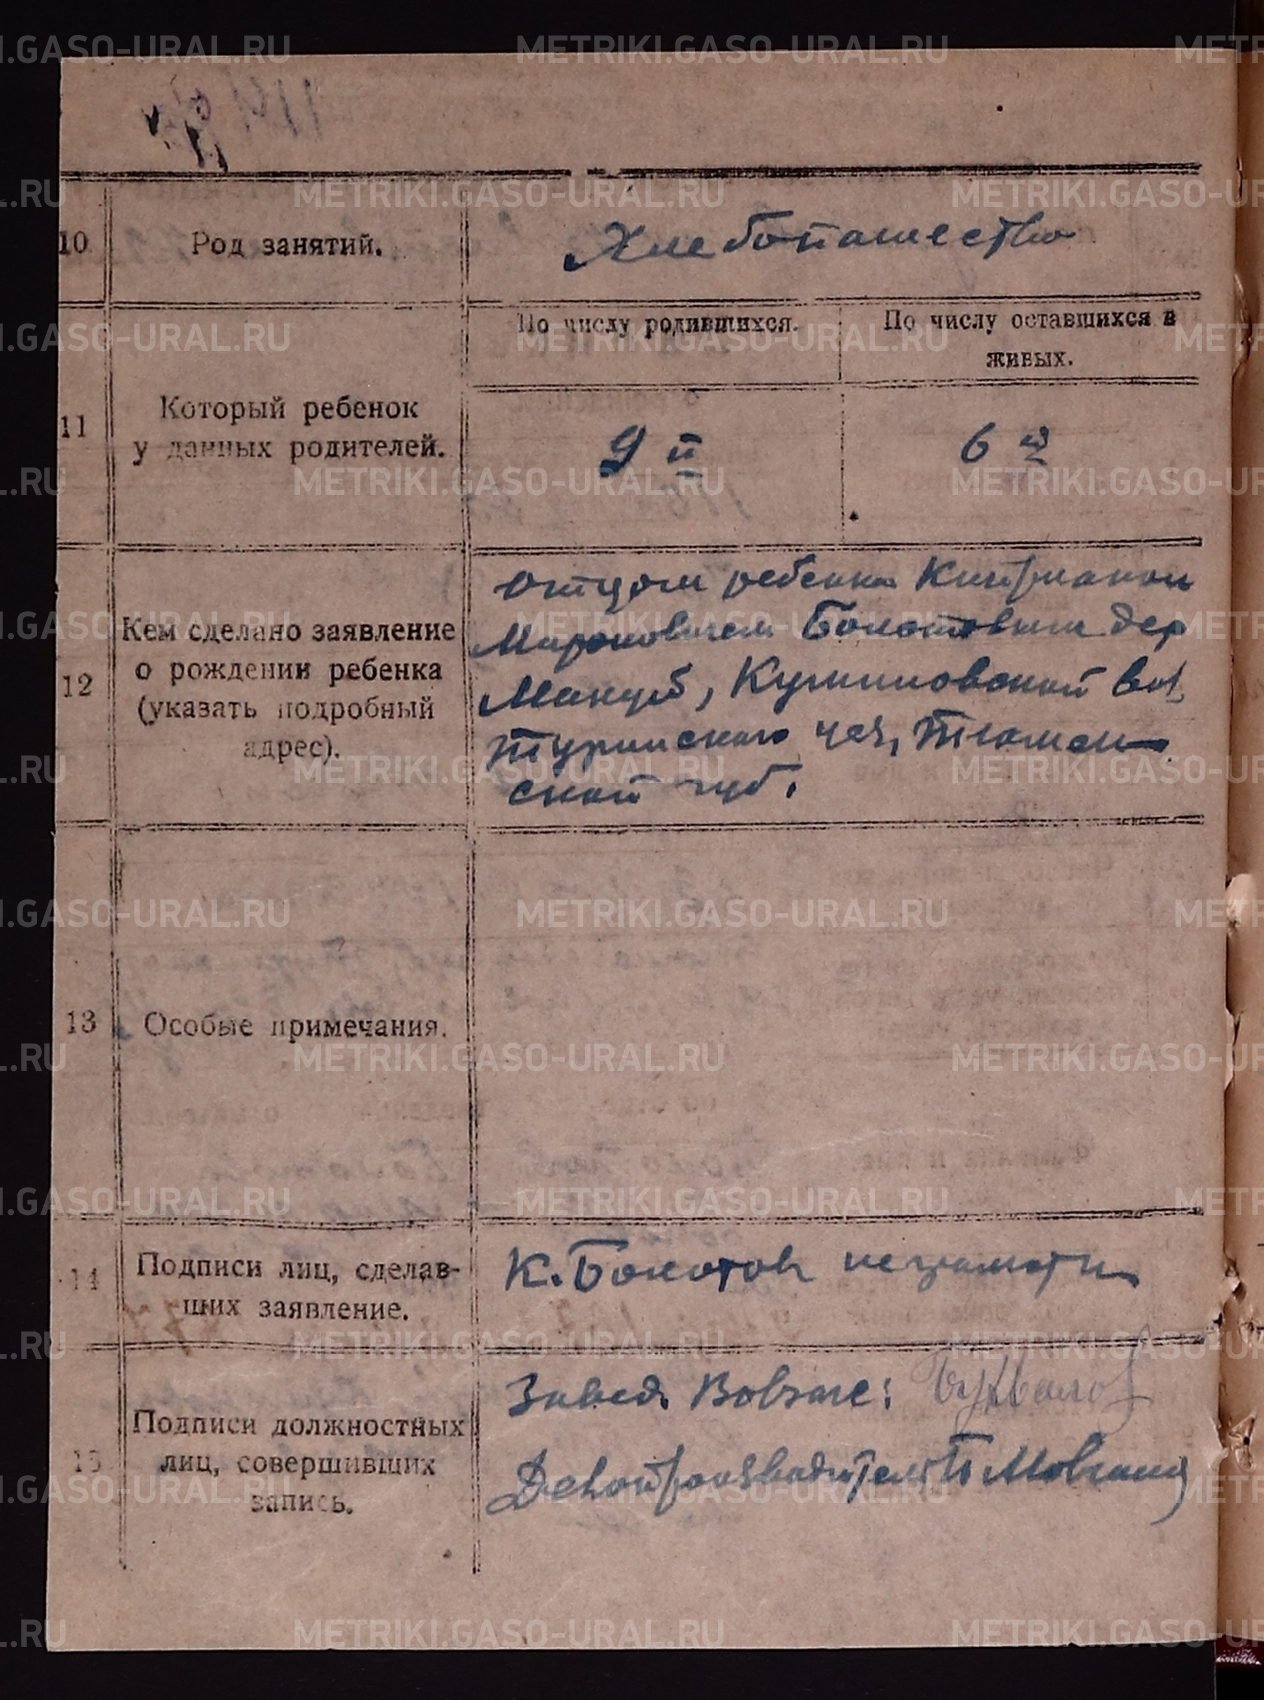 10 Род занятий. Хлебопашество
По числу родившихся. По числу оставшихся в
живых.
11 Который ребенок
у данных родителей.
9 й 6 й
12 Кем сделано заявление
о рождении ребенка
(указать подробный
адрес).
Отцом ребенка Киприаном
Мироновичем Болотовым дер
вол,
Туринского уез, Тюмен-
ской губ.
13 Особые примечания.
14 Подписи лиц, сделав-
ших заявление.
К. Болотов неграмотн
15 Подписи должностных
лиц, совершивших
запись.
Завед.
Делопроизводитель
METRIKI.GASO-URAL.RU